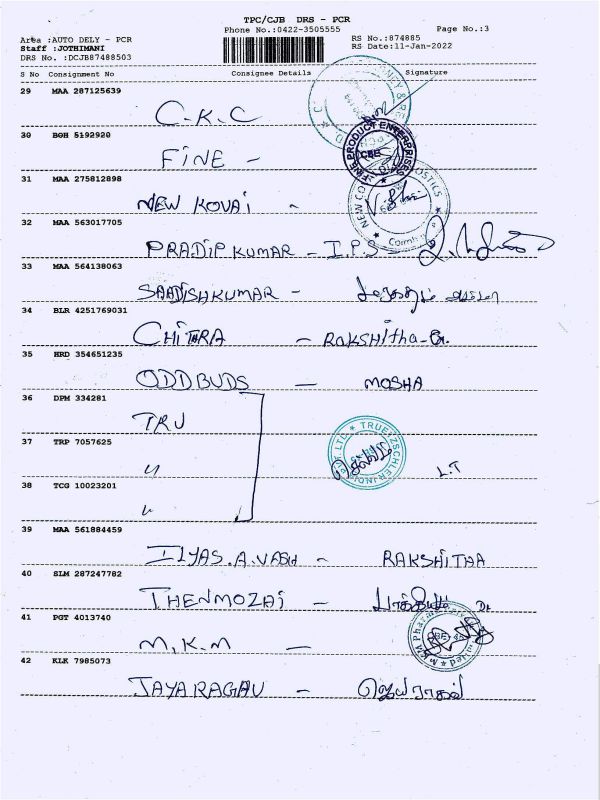 TPC/CJB DRS - PCR
Phone No.:0422-3505555
Page No.:3
Area :AUTO DELY - PCR
RS No.:874885
Staff :JOTHIMANI
RS Date:11-Jan-2022
DRS No. :DCJB87488503
S No Consignment No Consignee Details Signature
29 MAA 287125639
C.K.C
30 BGH 5192920
FINE -
FINE PRODUCT ENTERPRISES
CBE
31 MAA 275812898
NEW KOVAI -
NEW CO
32 MAA 563017705
PRADIP KUMAR - I.P.S -
33 MAA 564138063
SAADISHKUMAR -
34 BLR 4251769031
CHITHRA - RAKSHITHA-G.
35 HRD 354651235
ODDBUDS — MOSHA
36 DPM 334281
TRU
TRUETZSCHLER INDIA PVT. LTD.
37 TRP 7057625
" L.T
38 TCG 10023201
"
39 MAA 561884459
ILYAS.A.VASH - RAKSHITHA
40 SLM 287247782
THENMOZAI -
41 PGT 4013740
M.K.M —
42 KLK 7985073
JAYARAGAU - ஜெயராகவ்